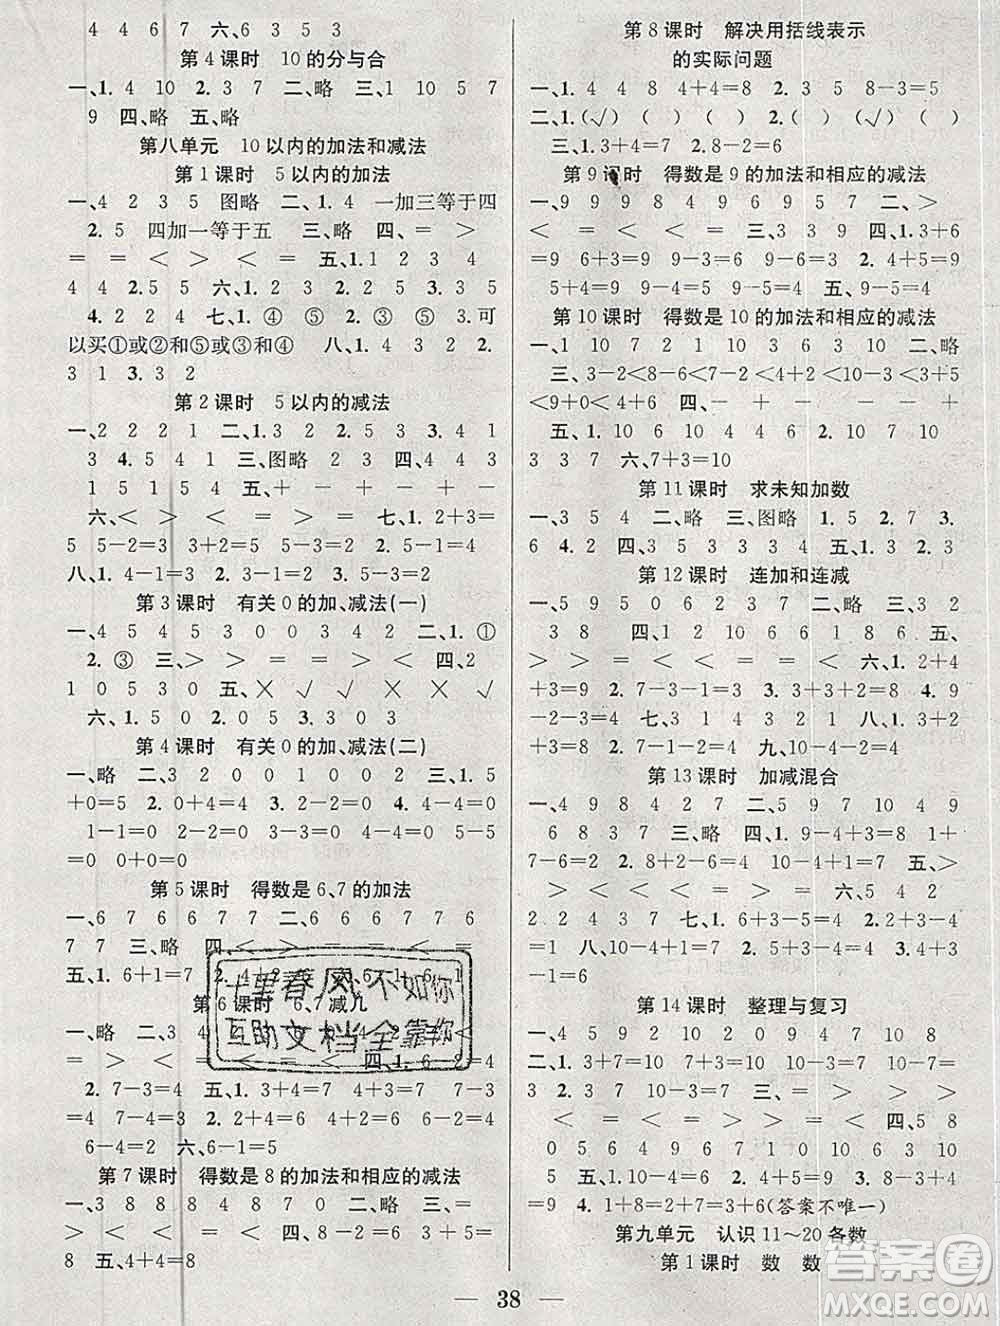 4 4 6 7 六、6 3 5 3
第 4 课时 10 的分与合
一、1. 4 10 2. 3 7 二、略 三、1 10 5 7
9 四、略 五、略
第八单元 10 以内的加法和减法
第 1 课时 5 以内的加法
一、4 2 3 5 图略 二、1. 4 一加三等于四
2. 5 四加一等于五 三、略 四、= >
= = < > < = 五、1. 1 2 3 4
4 4 2. 5 5 5 六、1. 2 3 4 5 3. 5
4. 2 2 4 七、1. ④ ⑤ 2. ③ ⑤ 3. 可
以买①或②和⑤或③和④ 八、1. 4 3 2 2.
3 1 3. 3 2
第 2 课时 5 以内的减法
一、2 2 2 1 二、1. 3 2 2. 5 3 4 1
3 4. 5 4 1 三、图略 2 3 四、4 1 3
1 5 1 5 4 五、+ － + － + －
六、< > < = > = 七、1. 2+3=
5 5－2=3 3+2=5 5－3=2 2.
八、1. 4－1=3 2. 3－1=2
第 3 课时 有关 0 的加、减法(一)
一、4 5 4 5 3 0 0 3 4 2 二、1. ①
2. ③ 三、> > > = > < 四、2
1 0 5 3 0 五、× √ √ × × √
六、1. 5 0 2. 0 5 3. 0 3
第 4 课时 有关 0 的加、减法(二)
一、略 二、3 2 0 0 1 0 0 2 三、1. 5
+0=5 2. 0+4=4 3. 2－2=0 4.
1－1=0 2－2=0 4－4=0 5－5
=0 3－3=0
第 5 课时 得数是 6、7 的加法
一、6 7 6 6 7 7 二、6 6 7 6 7 6
7 7 三、略 四、< < > = < =
五、1. 6+1=7 2. 4+2
第 6 课时 6、7 减几
一、略 二、3 4
= > < > = > 四、1. 6－2=
2. 7－3=4 7－4=3 3. 7－3=
4 五、1. 4+3=7 2. 6－2=4 3.
6－4=2 六、6－1=5
第 7 课时 得数是 8 的加法和相应的减法
一、3 8 8 8 4 8 7 0 二、略 三、=
> = < = < 四、8－2=6 8－0
=8 五、4+4=8
十里春风 不如你
互助文档 全靠你
第 8 课时 解决用括线表示
的实际问题
一、1. 4 4 8 4+4=8 2. 8－3=5
二、1. (√) ( ) ( ) 2. (√) ( ) ( )
三、1. 3+4=7 2. 8－2=6
第 9 课时 得数是 9 的加法和相应的减法
一、9 9 9 8 4 9 6 9 5 7 二、>
< = < < = 三、3 3 9 四、1. 3+6
=9 6+3=9 9－3=6 2. 4+5=9
5+4=9 9－4=5 五、2+7=9
第 10 课时 得数是 10 的加法和相应的减法
一、1 10 7 2 1 10 10 10 3 二、略
三、3－2<4－2<8－5<1+3<3+5
<9+0<4+6 四、－ + － + － +
五、1. 10 6 10 4 2. 10 9 10 8
3 3 7 六、7+3=10
第 11 课时 求未知加数
一、3 5 4 二、略 三、图略 1. 5 2. 7 3.
6 4. 2 四、3 5 3 3 3 4 五、1. 3 2. 3
第 12 课时 连加和连减
一、5 9 5 0 6 2 3 7 二、略 三、3 2
3 8 四、1 2 10 6 6 1 8 6 五、
> = > < < > 六、1. 2+4
+3=9 2. 7－3－1=3 3. 2+3+4=9
9－2－3=4 七、3 1 4 3 2 1 八、1. 3
+3+2=8 2. 7－1－2=4 九、10－4－2=4
第 13 课时 加减混合
一、4 9 8 4 2 7 二、9 5 7 10 4 9
6 8 3 7 三、略 四、1. 9－4+3=8 1+
7－6=2 2. 4+4－1=7 10－4+1=7 五、>
< > = < = < = 六、5 4 2
2 2 4 2 3 七、1. 6+3－5=4 2. 5+3－7
=1 八、10－4+1=7 4+3－5=2
第 14 课时 整理与复习
一、1. 4 3+4=7 2. 8 10－8=2
二、1. 3+3=6 3+7=10 7－4=
3 2. 3+4=7 10－7=3 三、< = >
> < = = = < < 四、1. 5 8
0 5 4 6 9 4 7 6 2. 10 9 4 6 5 10
五、1. 10－4=6 2. 7－2=5 3. 4+5
=9 4. 1+8=2+7=3+6(答案不唯一)
第九单元 认识 11～20 各数
第 1 课时 数 数
— 38 —
答案圈
MXQE.COM